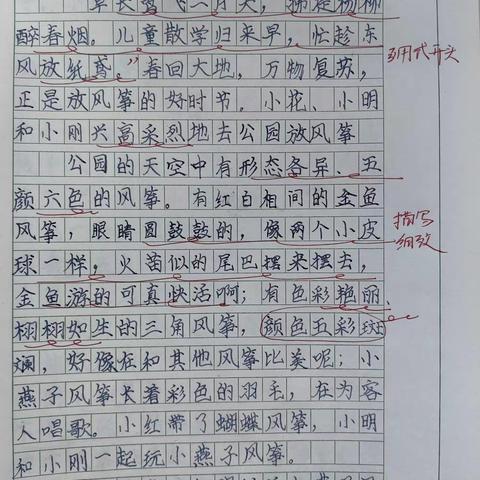 草长莺飞二月天，拂堤杨柳
醉春烟。儿童散学归来早，忙趁东
风放纸鸢”春回大地，万物复苏，
正是放风筝的好时节。小花、小明
和小刚兴高采烈地去公园放风筝
公园的天空中有形态各异、五
颜六色的风筝。有红白相间的金鱼
风筝，眼睛圆鼓鼓的，像两个小皮
球一样，火苗似的尾巴摆来摆去，
金鱼游的可真快活啊；有色彩艳丽、
栩栩如生的三角风筝，颜色五彩斑
斓，好像在和其他风筝比美呢；小
燕子风筝长着彩色的羽毛，在为客
人唱歌。小红带了蝴蝶风筝，小明
和小刚一起玩小燕子风筝。
引用式开头
描写
细致